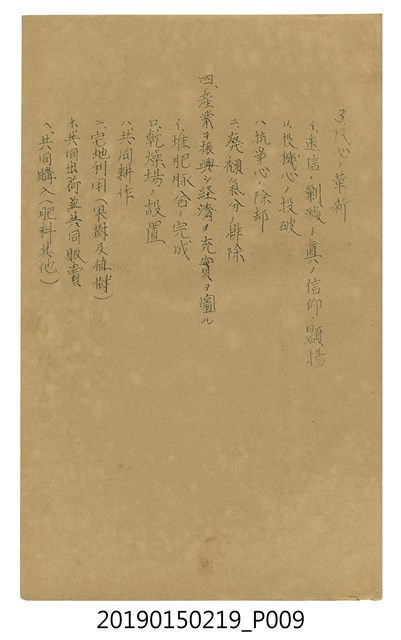 3、民心ノ革新
イ、迷信ノ剿滅ト真ノ信仰ノ顕揚
ロ、投機心ノ投破
ハ、抗争心ノ除却
ニ、廃頽気分ノ排除
四、産業ヲ振興シ経済ノ充實ヲ圖ル
イ、堆肥豚舎ノ完成
ロ、乾燥場ノ設置
ハ、共同耕作
ニ、宅地利用(果樹及植樹)
ホ、共同出荷並共同販賣
ヘ、共同購入(肥料其他)
20190150219_P009